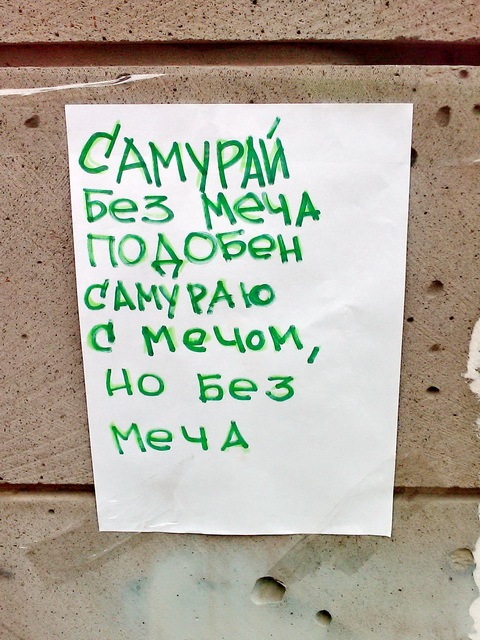 Самурай
без меча
подобен
самураю
с мечом,
но без
меча